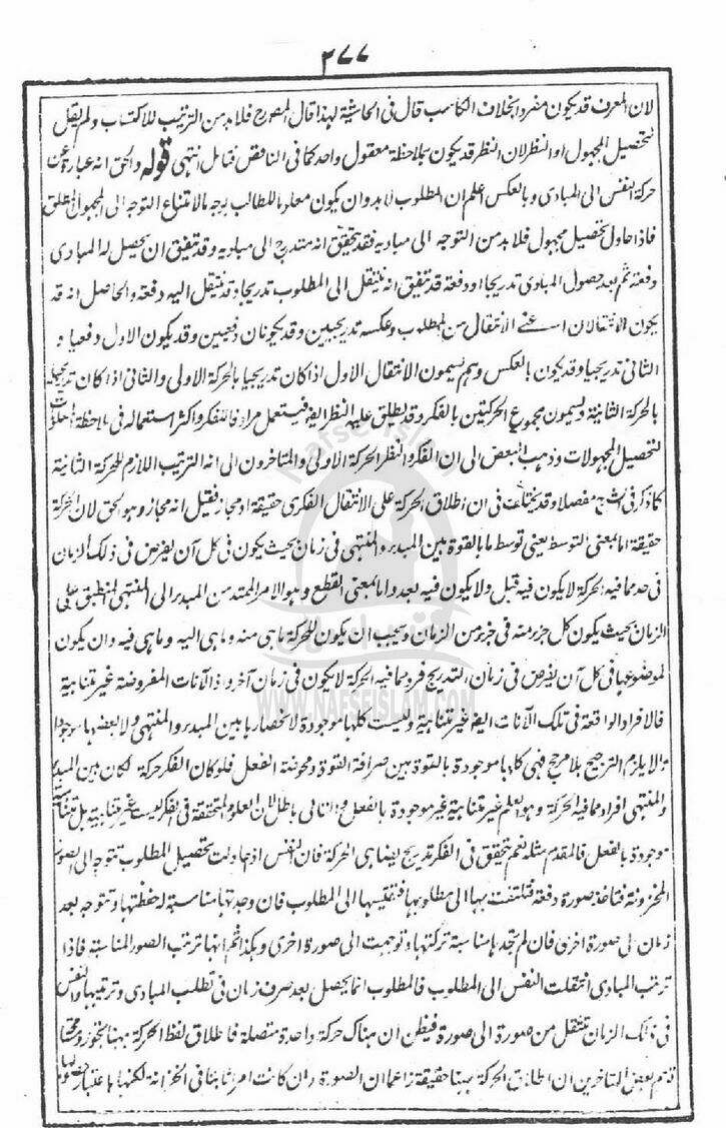 ٢٧٧
لان المعرف قد يكون مفردا بخلاف الكاسب قال فى الحاشية لهذا قال المصرح فلابد من الترتيب للاكتساب ولم يقل
لتحصيل المجهول او النظر لان النظر قد يكون بملاحظة معقول واحد كما فى الناقص فتامل انتهى قوله والحق انه عبارة عن
حركة النفس الى المبادى وبالعكس اعلم ان المطلوب لابد وان يكون معلوما للطالب بوجه ما لامتناع التوجه الى المجهول المطلق
فاذا حاول تحصيل مجهول فلابد من التوجه الى مباديه فقد يتحقق انه متدرج الى مباديه وقد يتفق ان يحصل له المبادى
دفعة ثم بعد حصول المبادى تدريجا او دفعة قد يتفق انه ينتقل الى المطلوب تدريجا وقد ينتقل اليه دفعة والحاصل انه قد
يكون الانتقالان اعنى الانتقال من المطلوب وعكسه تدريجيين وقد يكونان دفعيين وقد يكون الاول دفعيا و
الثانى تدريجيا وقد يكون بالعكس وهم يسمون الانتقال الاول اذا كان تدريجيا بالحركة الاولى والثانى اذا كان تدريجيا
بالحركة الثانية ويسمون مجموع الحركتين بالفكر وقد يطلق عليه النظر ايضا فيستعمل مرادفا للفكر واكثر استعماله فى ملاحظة المعلومات
لتحصيل المجهولات وذهب البعض الى ان الفكر والنظر الحركة الاولى والمتاخرون الى انه الترتيب اللازم للحركة الثانية
كما ذكر فى الشرح مفصلا وقد يختلف فى ان اطلاق الحركة على الانتقال الفكرى حقيقة او مجاز فقيل انه مجاز وهو الحق لان الحركة
حقيقة اما بمعنى التوسط يعنى توسط ما بالقوة بين المبدء والمنتهى فى زمان بحيث يكون فى كل آن يفرض فى ذلك الزمان
فى حد مما فيه الحركة لا يكون فيه قبل ولا يكون فيه بعد واما بمعنى القطع وهو الامر الممتد من المبدء الى المنتهى المنطبق على
الزمان بحيث يكون كل جزء منه فى جزء من الزمان ويجب ان يكون للحركة ما هى منه وما هى اليه وما هى فيه وان يكون
لموضوعها فى كل آن يفرض فى زمان التدريج فرد مما فيه الحركة لا يكون فى زمان آخر واذ الآنات المفروضة غير متناهية
فالافراد الواقعة فى تلك الآنات ايضا غير متناهية وليست كلها موجودة لانحصارها بين المبدء والمنتهى ولا بعضها موجودا
والا يلزم الترجيح بلا مرجح فهى كلها موجودة بالقوة بين صرافة القوة ومحوضة الفعل فلو كان الفكر حركة لكان بين المبدء
والمنتهى افراد مما فيه الحركة وهو العلم غير متناهية غير موجودة بالفعل والتالى باطل لان العلوم المتحققة فى الفكر ليست غير متناهية بل متناهية
موجودة بالفعل فالمقدم مثله نعم يتحقق فى الفكر تدريج يضاهى الحركة فان النفس اذا حاولت تحصيل المطلوب تتوجه الى الصور
المخزونة فتاخذ صورة دفعة فتلتفت بها الى مطلوبها فتقيسها الى المطلوب فان وجدتها مناسبة له حفظتها وتتوجه بعد
زمان الى صورة اخرى فان لم تجدها مناسبة تركتها وتوجهت الى صورة اخرى وهكذا ثم انها ترتب الصور المناسبة فاذا
ترتب المبادى انتقلت النفس الى المطلوب فالمطلوب انما يحصل بعد صرف زمان فى تطلب المبادى وترتيبها والنفس
فى ذلك الزمان تنتقل من صورة الى صورة فيظن ان هناك حركة واحدة متصلة فاطلاق لفظ الحركة ههنا بتجوز
بعض المتاخرين ان اطلاق الحركة ههنا حقيقة زاعما ان الصورة وان كانت امرا ثابتا فى الخزانة لكنها باعتبار
WWW.NAFSEISLAM.COM